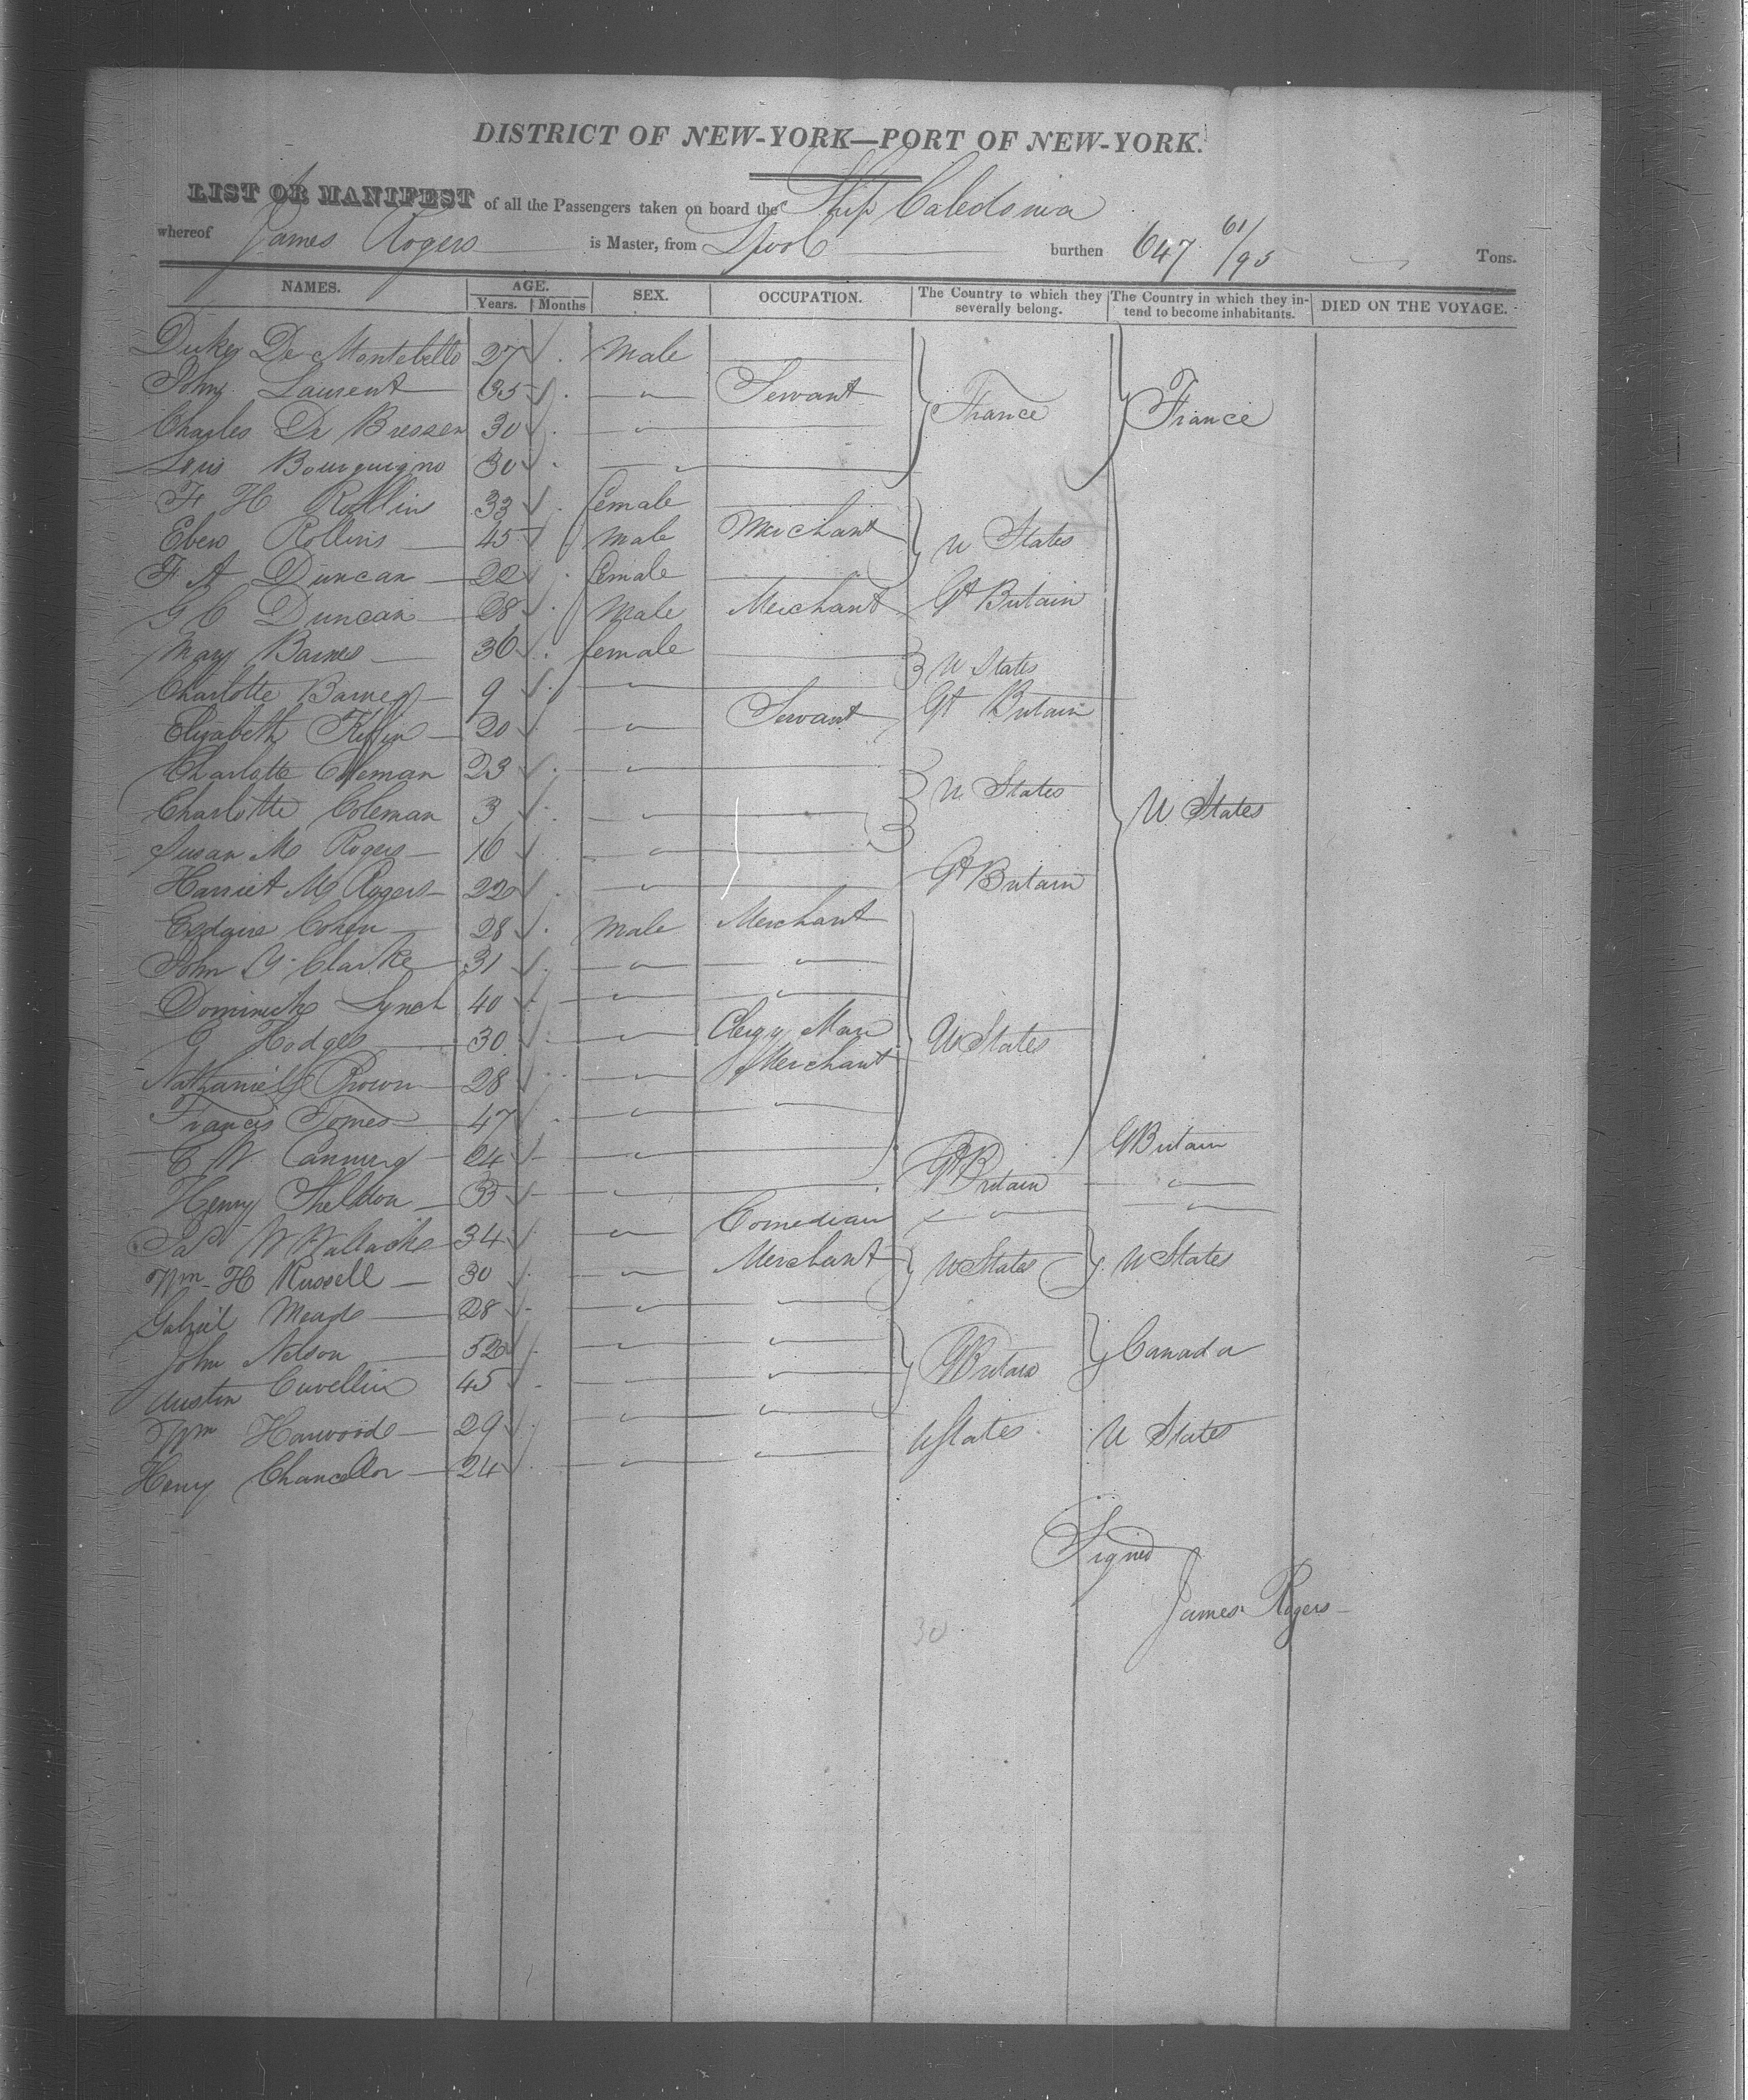 DISTRICT OF NEW-YORK—PORT OF NEW-YORK.
LIST OR MANIFEST of all the Passengers taken on board the Ship Caledonia
whereof James Rogers is Master, from Lpool burthen 647 61/95 Tons.
NAMES. AGE. Years. Months SEX. OCCUPATION. The Country to which they severally belong. The Country in which they intend to become inhabitants. DIED ON THE VOYAGE.
Duke De Montebello 27 Male
John Laurent 35 " Servant France France
Charles De Bressen 30 "
Louis Bourguigno 30 "
F H Rollins 33 female
Eben Rollins 45 Male Merchant U States
F A Duncan 22 female
G C Duncan 28 Male Merchant Gt Britain
Mary Barnes 36 female U States
Charlotte Barnes 9 "
Elizabeth 20 " Servant Gt Britain
Charlotte Coleman 23 " U States
Charlotte Coleman 3 " U States
Susan M Rogers 16 "
Harriet M Rogers 22 " Gt Britain
Cohen 28 Male Merchant
John Y. Clarke 31 " "
Dominick Lynch 40 " "
G Hodges 30 " Clergy Man U States
Nathaniel Brown 28 " Merchant
Francis Tomes 47 " "
C W Canning 24 " Gt Britain G Britain
Henry Sheldon 33 " "
Jas W Wallack 34 " Comedian " "
Wm H Russell 30 " Merchant U States U States
Gabriel Mead 28 " "
John Nelson 52 " " G Britain Canada
Austin Cuvellier 45 " "
Wm Harwood 29 " "
Henry Chancellor 24 " " U States U States
Signed
James Rogers
30